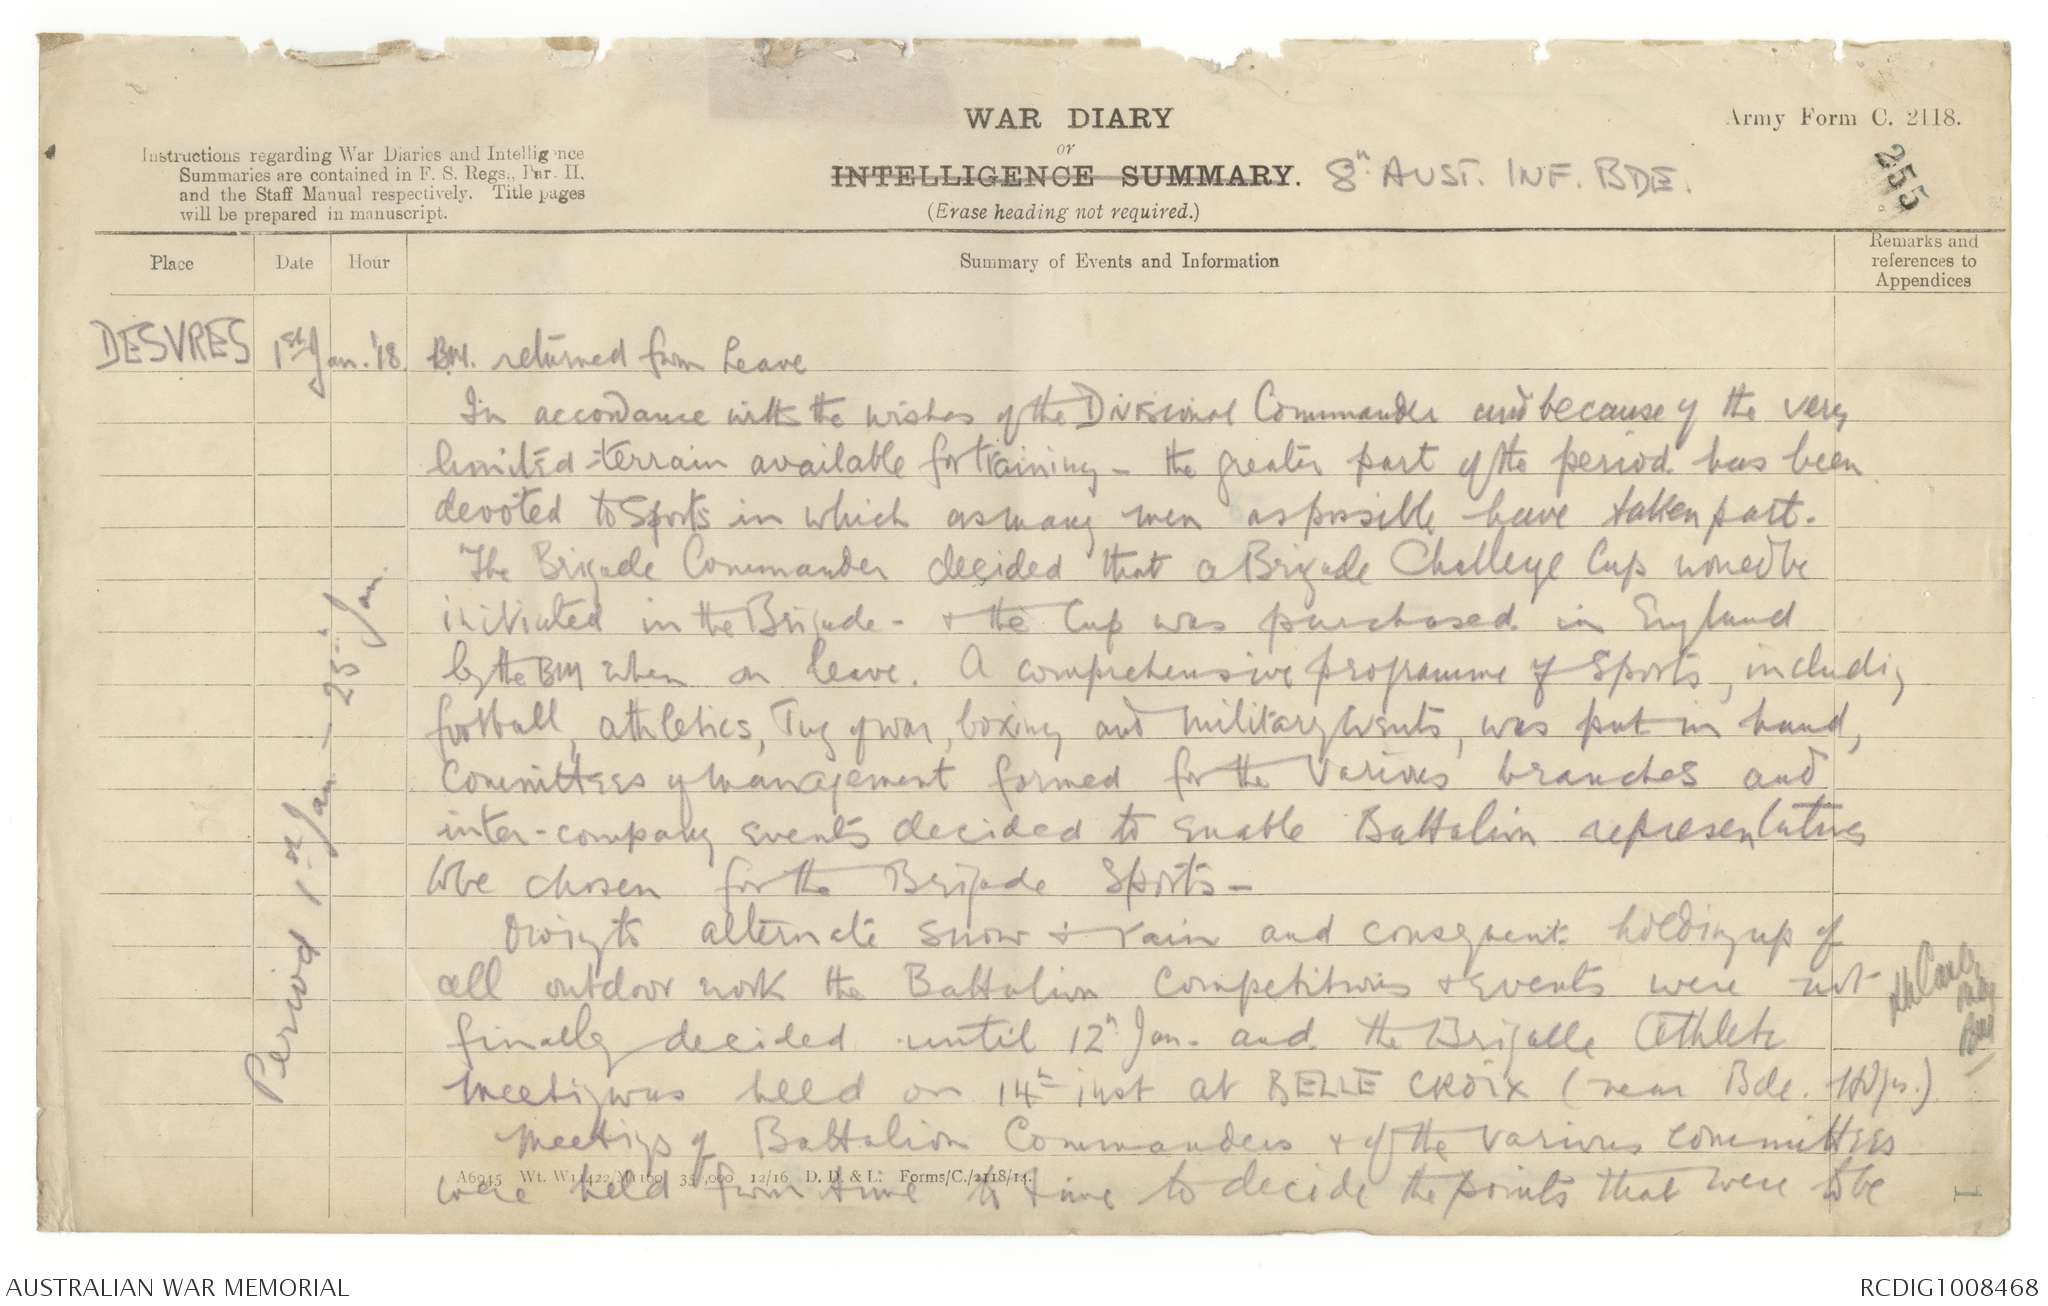 WAR DIARY
or
INTELLIGENCE SUMMARY.
(Erase heading not required.)
8th AUST. INF. BDE.
Army Form C. 2118.
255
Instructions regarding War Diaries and Intelligence
Summaries are contained in F. S. Regs., Par. II.
and the Staff Manual respectively. Title pages
will be prepared in manuscript.
Place
Date
Hour
Summary of Events and Information
Remarks and
references to
Appendices
DESVRES
1st Jan. '18.
Period 1st Jan – 25 Jan.
B.M. returned from Leave
In accordance with the wishes of the Divisional Commander and because of the very
limited terrain available for training – the greater part of the period has been
devoted to Sports in which as many men as possible have taken part.
The Brigade Commander decided that a Brigade Challenge Cup would be
initiated in the Brigade - & the Cup was purchased in England
by the BM when on leave. A comprehensive programme of Sports, including
football, athletics, Tug of war, boxing and military events, was put in hand,
Committees of management formed for the various branches and
inter-company events decided to enable Battalion representatives
to be chosen for the Brigade Sports –
Owing to alternate snow & rain and consequent holding up of
all outdoor work the Battalion Competitions & events were not
finally decided until 12th Jan. and the Brigade Athletic
Meeting was held on 14th inst at BELLE CROIX (near Bde. HdQrs.)
Meetings of Battalion Commanders & of the various committees
were held from time to time to decide the points that were to be
A6945 Wt. W11422/M1160 35,000 12/16 D. D. & L. Forms/C./2118/14.
1
AUSTRALIAN WAR MEMORIAL
RCDIG1008468